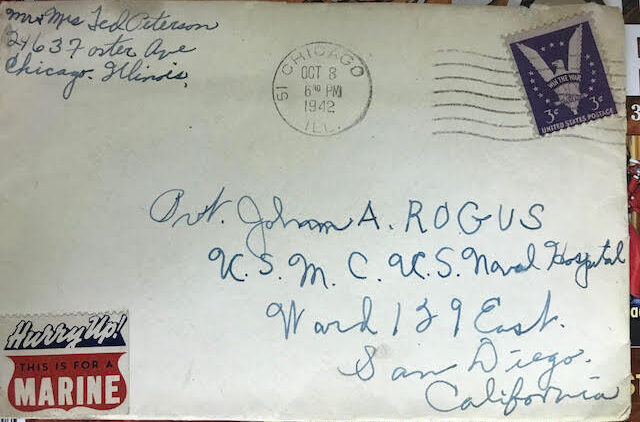 Mr + Mrs Ted Peterson
2463 Foster Ave
Chicago. Illinois.
CHICAGO
OCT 8
PM
1942
ILL.
WIN THE WAR
3¢ 3¢
UNITED STATES POSTAGE
Pvt. A. ROGUS
U.S.M.C. U.S. Naval Hospital
Ward 129 East.
San Diego.
California
Hurry Up!
THIS IS FOR A
MARINE